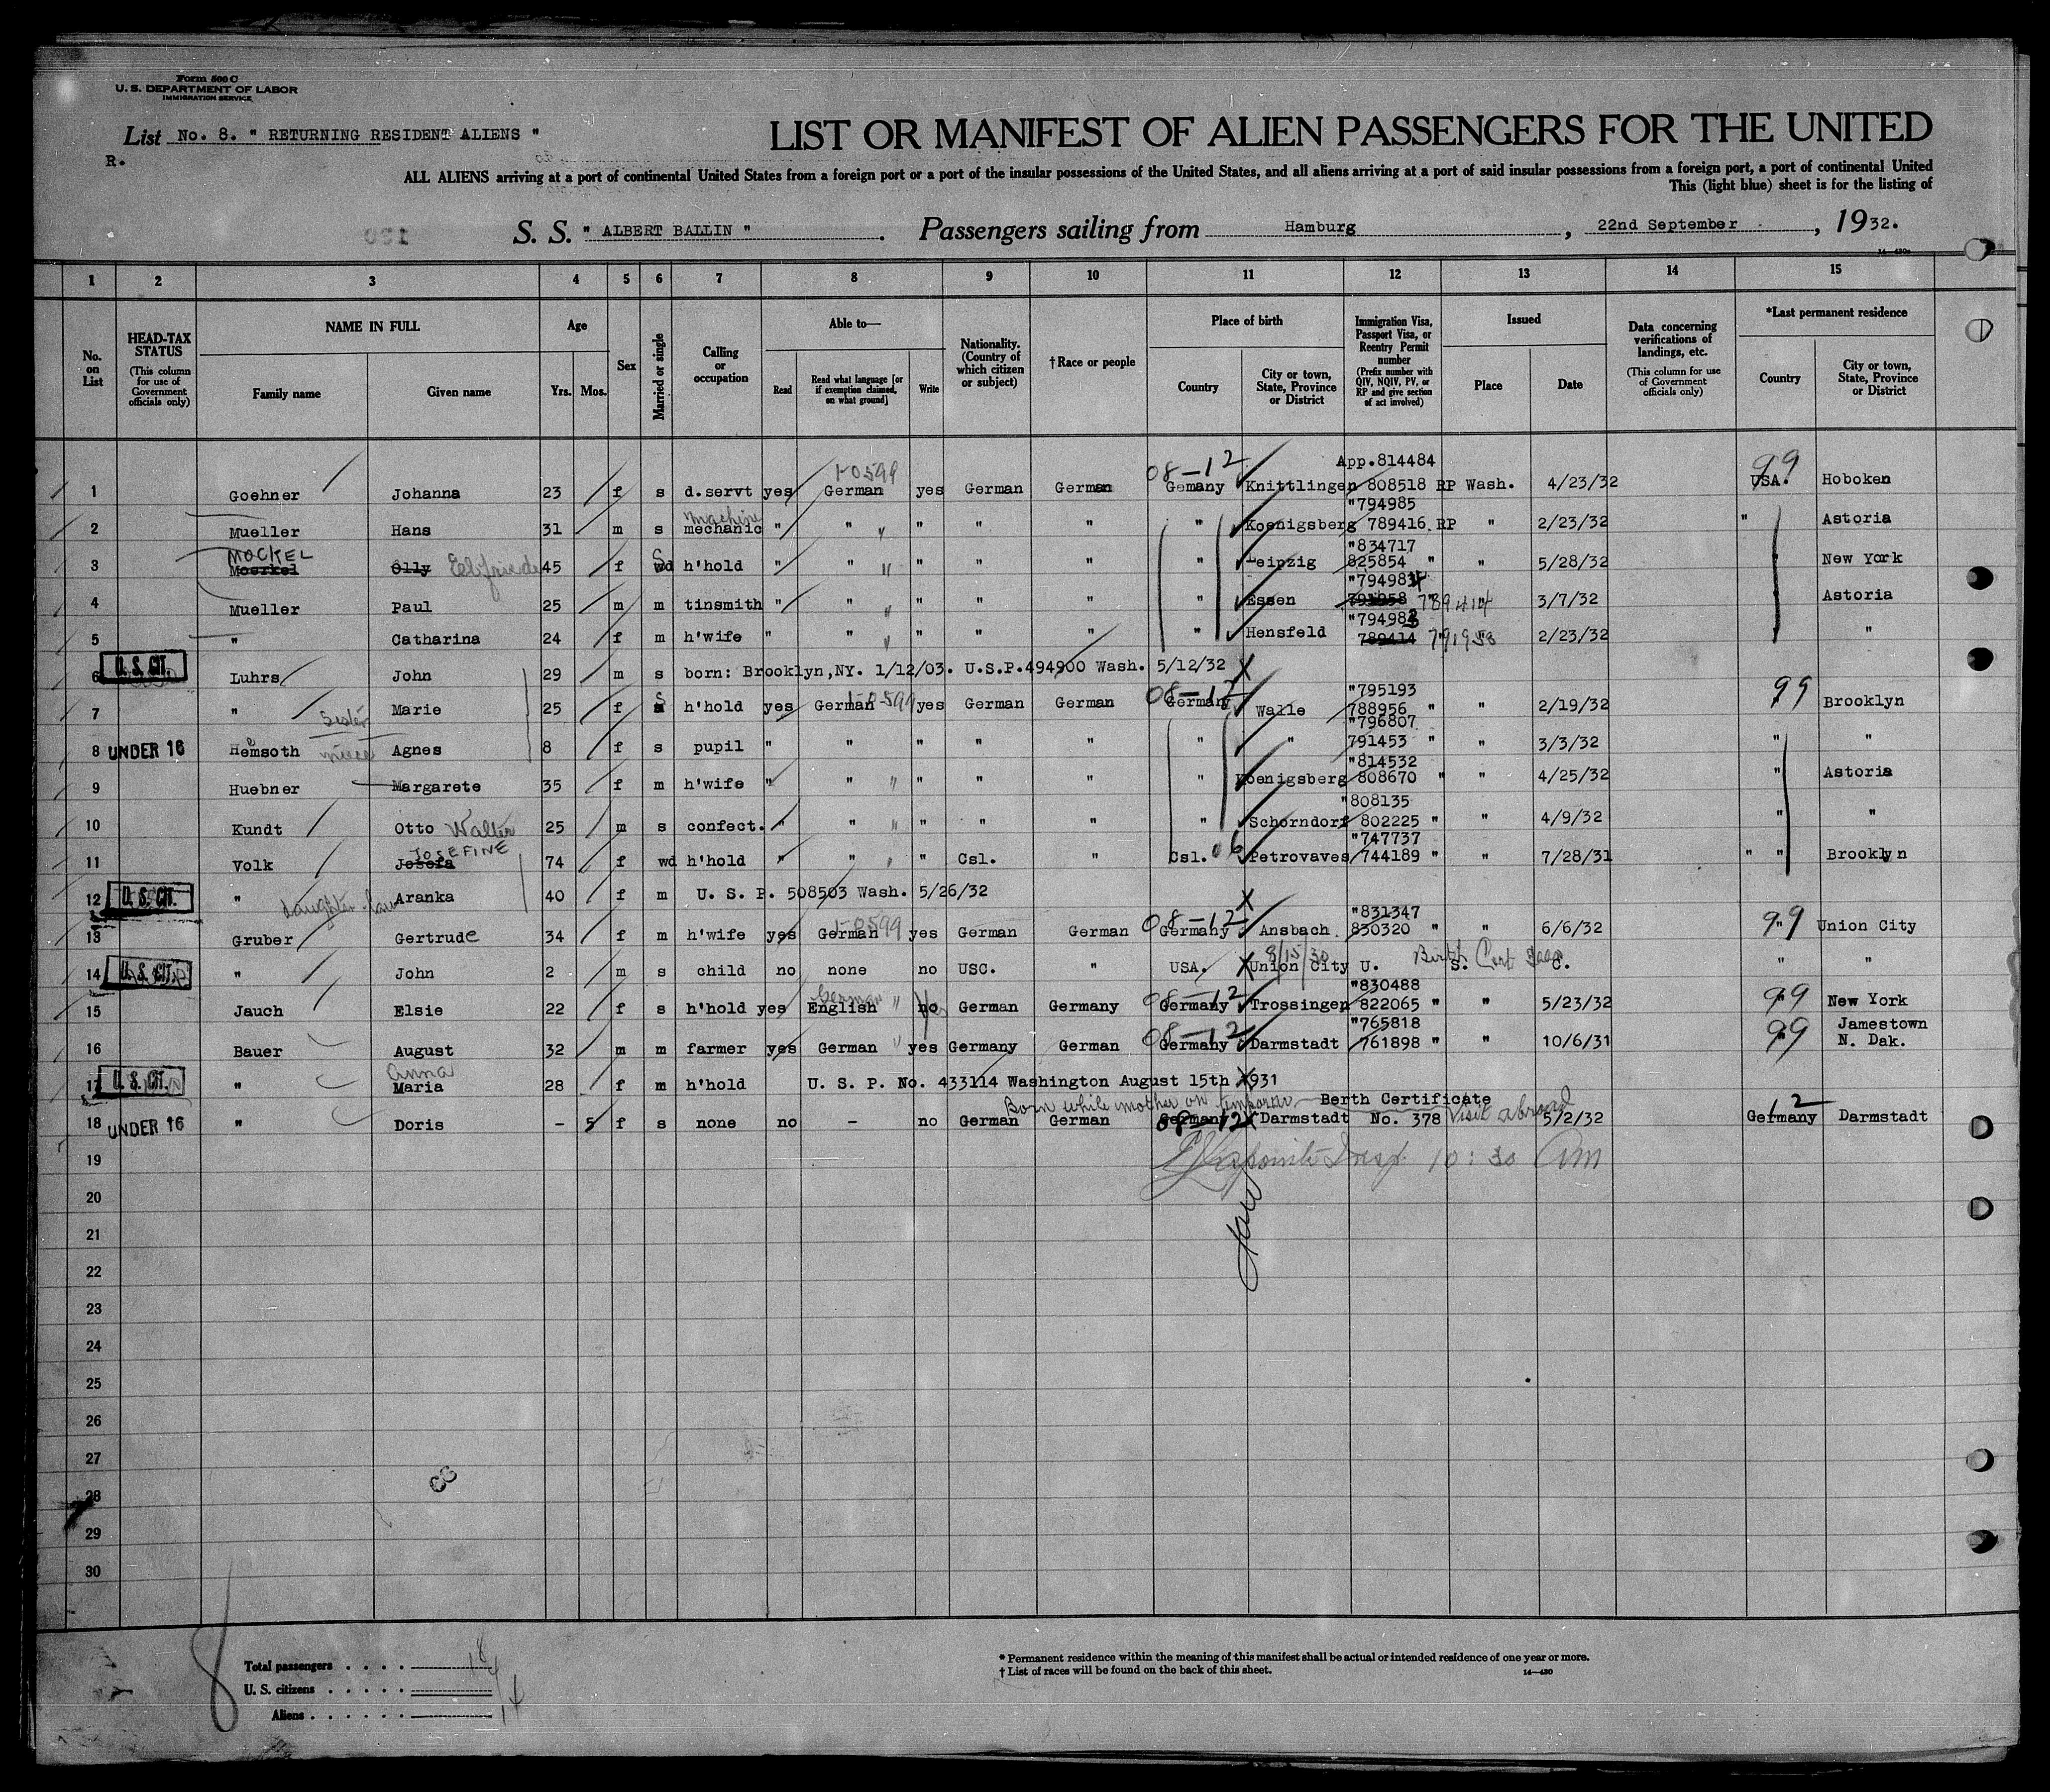 Form 500 C
U. S. DEPARTMENT OF LABOR
IMMIGRATION SERVICE
List No. 8. " RETURNING RESIDENT ALIENS "
R.
LIST OR MANIFEST OF ALIEN PASSENGERS FOR THE UNITED
ALL ALIENS arriving at a port of continental United States from a foreign port or a port of the insular possessions of the United States, and all aliens arriving at a port of said insular possessions from a foreign port, a port of continental United
This (light blue) sheet is for the listing of
S. S. " ALBERT BALLIN " . Passengers sailing from Hamburg , 22nd September , 1932.
14—430a
1 2 3 4 5 6 7 8 9 10 11 12 13 14 15
No. on List
HEAD-TAX STATUS (This column for use of Government officials only)
NAME IN FULL Family name Given name
Age Yrs. Mos.
Sex
Married or single
Calling or occupation
Able to— Read Read what language [or if exemption claimed, on what ground] Write
Nationality. (Country of which citizen or subject)
†Race or people
Place of birth Country City or town, State, Province or District
Immigration Visa, Passport Visa, or Reentry Permit number (Prefix number with QIV, NQIV, PV, or RP and give section of act involved)
Issued Place Date
Data concerning verifications of landings, etc. (This column for use of Government officials only)
*Last permanent residence Country City or town, State, Province or District
1-0599 08-12 App.814484 99
1 Goehner Johanna 23 f s d.servt yes German yes German German Gemany Knittlingen 808518 RP Wash. 4/23/32 USA. Hoboken
machine "794985
2 Mueller Hans 31 m s mechanic " " " " " " Koenigsberg 789416 RP " 2/23/32 " Astoria
MOCKEL "834717
3 Moerkel Olly 45 f wd h'hold " " " " " " Leipzig 825854 " " 5/28/32 New York
"794984
4 Mueller Paul 25 m m tinsmith " " " " " " Essen 791958 789414 " 3/7/32 Astoria
"794983
5 " Catharina 24 f m h'wife " " " " " " Hensfeld 789414 791958 " 2/23/32 "
U. S. CIT.
6 Luhrs John 29 m s born: Brooklyn,NY. 1/12/03. U.S.P.494900 Wash. 5/12/32 X
1-0599 08-12 "795193 99
7 " Marie 25 f s h'hold yes German yes German German Germany Walle 788956 " " 2/19/32 Brooklyn
sister "796807
8 UNDER 16 Hemsoth niece Agnes 8 f s pupil " " " " " " " 791453 " " 3/3/32 " "
"814532
9 Huebner Margarete 35 f m h'wife " " " " " " Koenigsberg 808670 " " 4/25/32 " Astoria
"808135
10 Kundt Otto Walter 25 m s confect. " " " " " " Schorndorf 802225 " " 4/9/32 " "
JOSEFINE "747737
11 Volk Josefa 74 f wd h'hold " " " Csl. " Csl. 06 Petrovaves 744189 " " 7/28/31 " " Brooklyn
U. S. CIT.
12 " Daughter-law Aranka 40 f m U. S. P. 508503 Wash. 5/26/32 X
1-0599 08-12 "831347 99
13 Gruber Gertrude 34 f m h'wife yes German yes German German Germany Ansbach 830320 " " 6/6/32 " Union City
8/15/30 Birth Cert
14 U. S. CIT. " John 2 m s child no none no USC. " USA. X Union City U. S. C. " "
German 08-12 "830488
15 Jauch Elsie 22 f s h'hold yes English " no yes German Germany Germany Trossingen 822065 " " 5/23/32 99 New York
08-12 "765818 Jamestown
16 Bauer August 32 m m farmer yes German " yes Germany German Germany Darmstadt 761898 " " 10/6/31 99 N. Dak.
Anna
17 U. S. CIT. " Maria 28 f m h'hold U. S. P. No. 433114 Washington August 15th 1931
Born while mother on temporary visit abroad Berth Certificate 12
18 UNDER 16 " Doris - 5 f s none no - no German German Germany 08-12 Darmstadt No. 378 5/2/32 Germany Darmstadt
19 Insp. 10:30 Am
20
21
22
23
24
25
26
27
28
29
30
8
Total passengers . . . . 18
U. S. citizens . . . . . 4
Aliens . . . . . . 14
* Permanent residence within the meaning of this manifest shall be actual or intended residence of one year or more.
† List of races will be found on the back of this sheet.
14—430